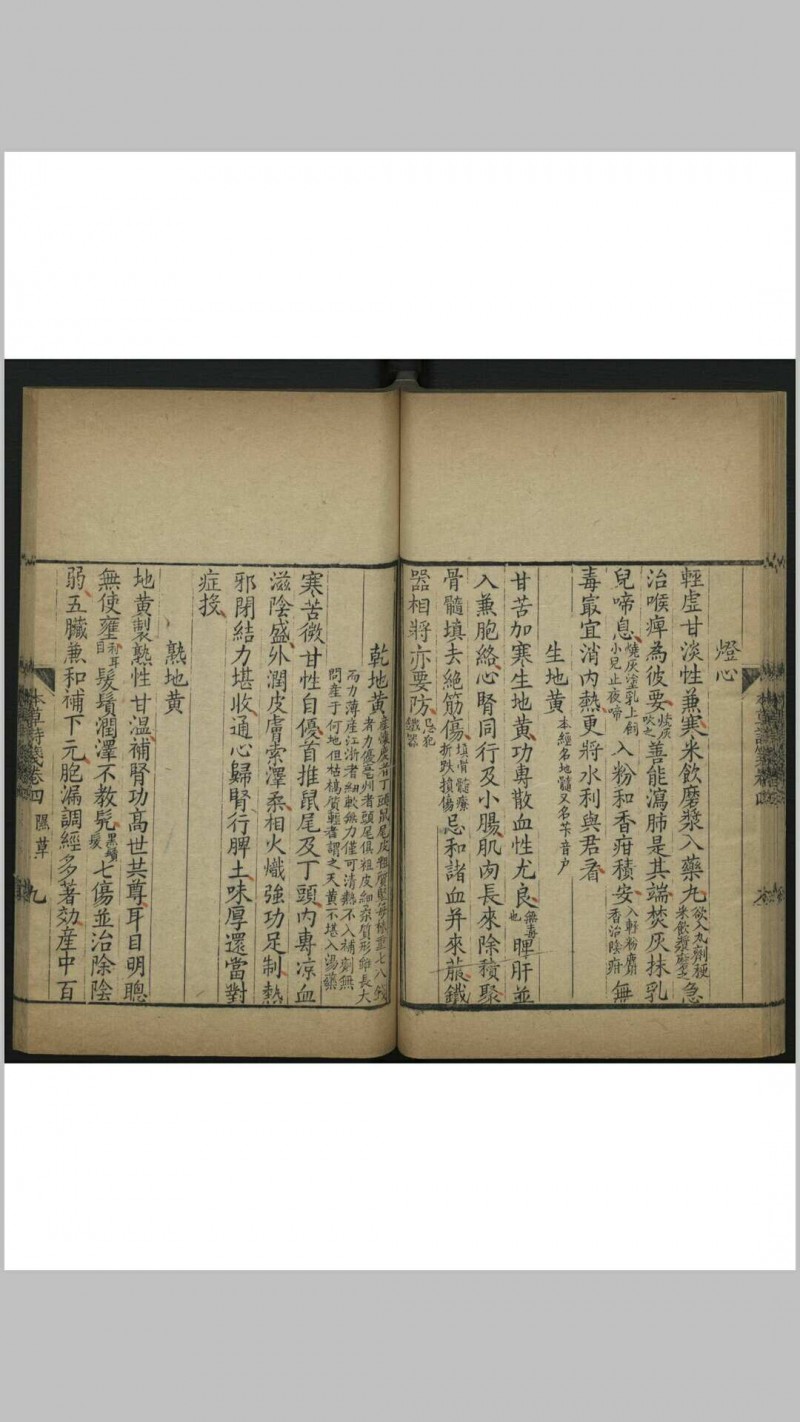 燈心
輕虛甘淡性兼寒米飲磨漿入藥丸欲入丸劑粳米飲漿磨之急
治喉痺為彼要燒灰吹之善能瀉肺是其端焚灰抹乳
兒啼息燒灰塗乳上飼小兒止夜啼入粉和香疳積安入輕粉麝香治陰疳無
毒最宜消內熱更將水利與君看
生地黃本經名地髓又名芐音户
甘苦加寒生地黃功專散血性尤良無毒也脾肝並
入兼胞絡心腎同行及小腸肌肉長來除積聚
骨髓填去絕筋傷填骨髓療折跌損傷忌和諸血并來菔鐵
器相將亦要防忌犯鐵器
乾地黃產懷慶者丁頭鼠尾皮粗質堅每株重七八錢
者力優亳州者頭尾俱粗皮細柔質形雖長大
而力薄產江浙者細軟無力僅可清熱不入補劑無
問產于何地但枯槁質輕者謂之天黃不堪入湯藥
寒苦微甘性自優首推鼠尾及丁頭內專凉血
滋陰盛外潤皮膚索澤柔相火熾強功足制熱
邪閉結力堪收通心歸腎行脾土味厚還當對
症投
熟地黃
地黃製熟性甘溫補腎功高世共尊耳目明聰
無使壅利耳目髮鬚潤澤不教髠黑鬚髮七傷並治除陰
弱五臟兼和補下元胞漏調經多著効產中百
本草詩箋卷四 隰草 九